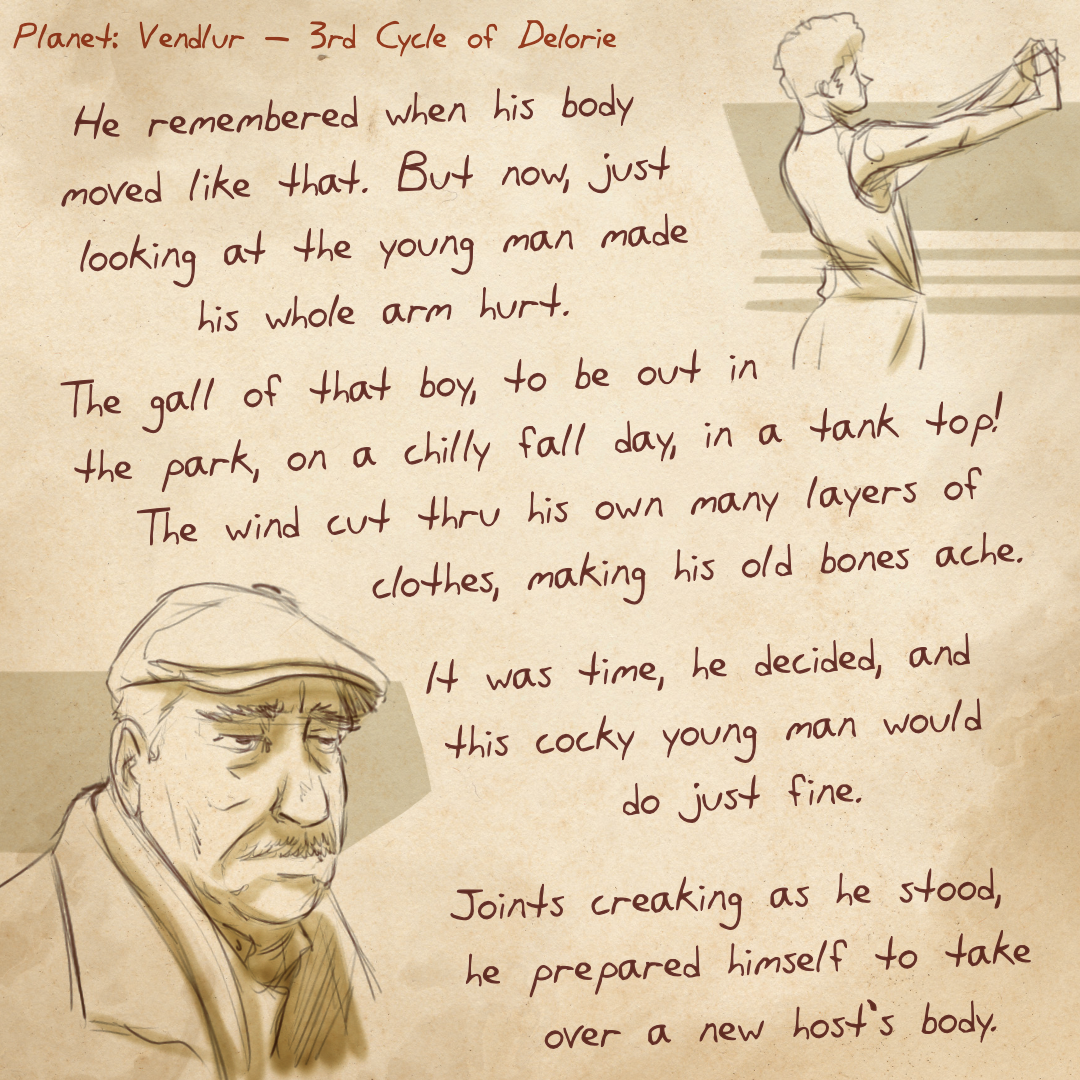 Planet: Vendlur – 3rd Cycle of Delorie
He remembered when his body
moved like that. But now, just
looking at the young man made
his whole arm hurt.
The gall of that boy, to be out in
the park, on a chilly fall day, in a tank top!
The wind cut thru his own many layers of
clothes, making his old bones ache.
It was time, he decided, and
this cocky young man would
do just fine.
Joints creaking as he stood,
he prepared himself to take
over a new host's body.